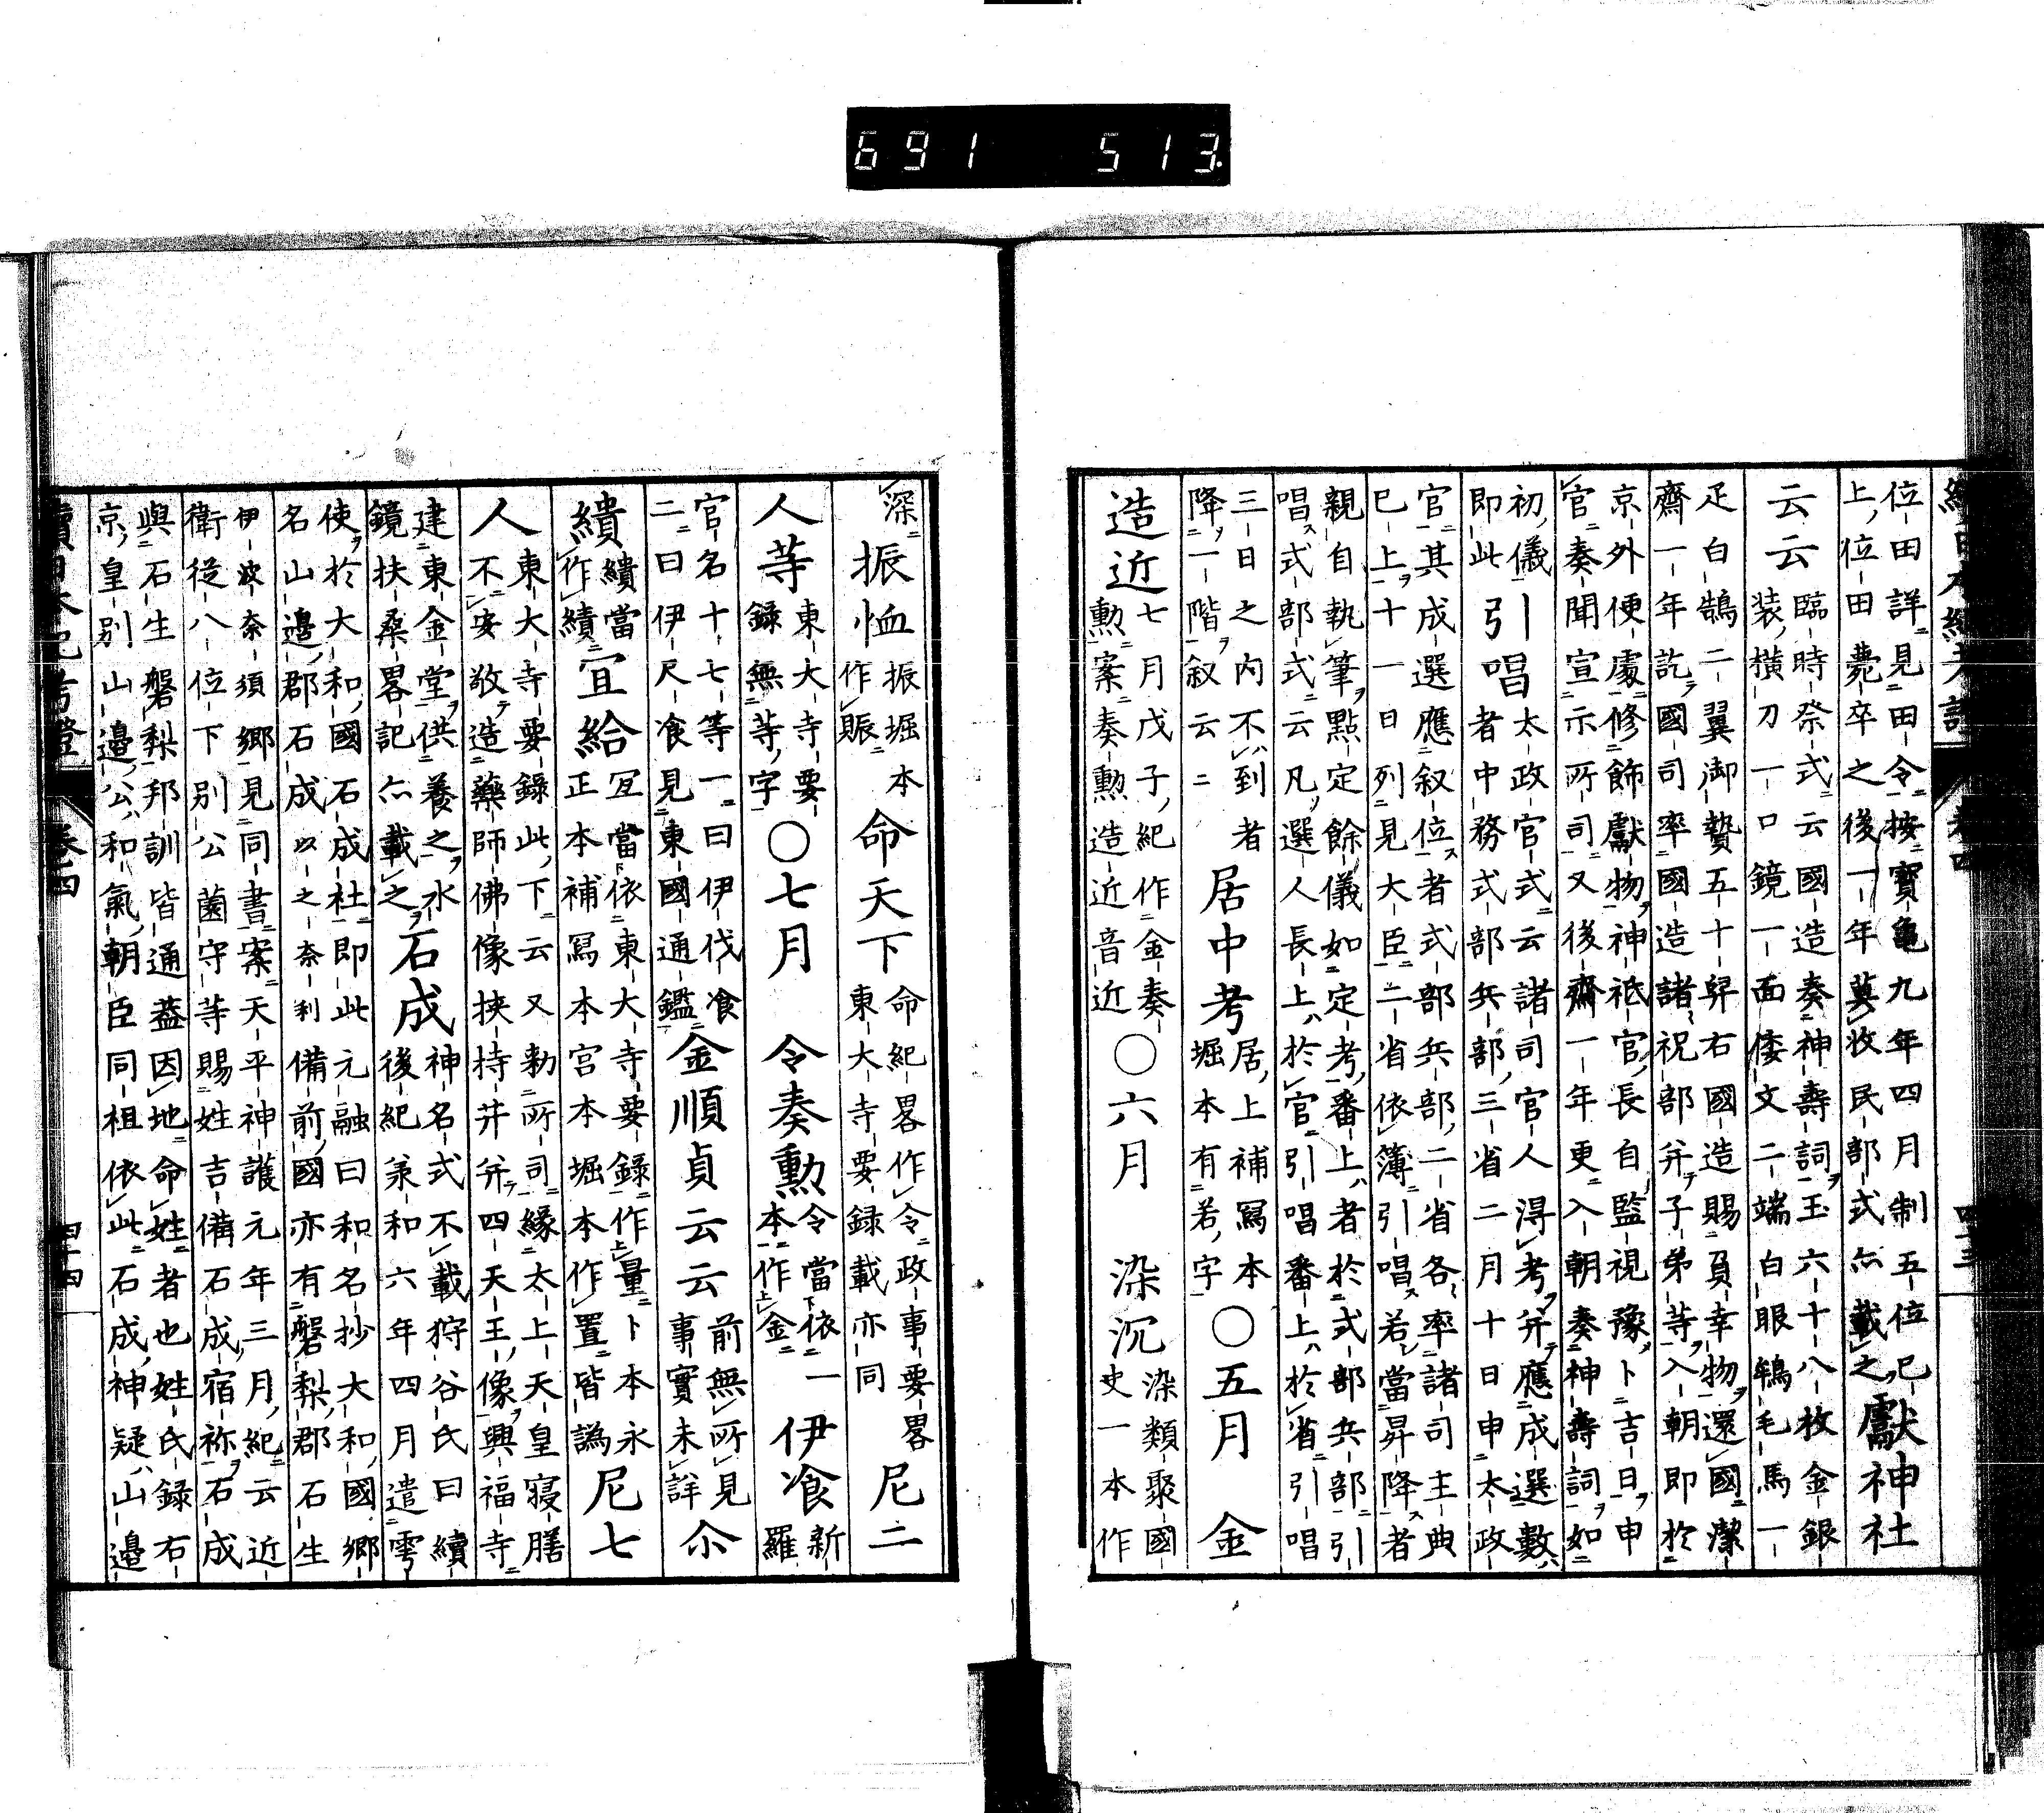 691 513
位田詳見田令按寶龜九年四月制五位已
上位田薨卒之後一年莫收民部式亦載之獻神社
云云臨時祭式云國造奏神壽詞玉六十八枚金銀
装横刀一口鏡一面倭文二端白眼鴾毛馬一
疋白鵠二翼御贄五十舁右國造賜負幸物還國潔
齋一年訖國司率國造諸祝部并子弟等入朝即於
京外便處修飾獻物神祇官長自監視豫卜吉日申
官奏聞宣示所司又後齋一年更入朝奏神壽詞如
初儀引唱太政官式云諸司官人得考并應成選數
即此者中務式部兵部三省二月十日申太政
官其成選應叙位者式部兵部二省各率諸司主典
已上十一日列見大臣二省依簿引唱若當昇降者
親自執筆點定餘儀如定考番上者於式部兵部引
唱式部式云凡選人長上於官引唱番上於省引唱
三日之内不到者居中考居上補冩本〇五月　金
降一階叙云云堀本有若字
造近七月戊子紀作金奏〇六月　染沉染類聚國
勲案奏勲造近音近史一本作
深振恤振堀本命天下命紀畧作令政事要畧尼二
作賑東大寺要録載亦同
人等東大寺要〇七月　令奏勲令當依一伊飡新
録無等字本作金羅
官名十七等一曰伊伐飡金順貞云云前無所見尒
二曰伊尺飡見東國通鑑事實未詳
繢繢當宜給宜當依東大寺要録作量卜本永尼七
作績正本補冩本宮本堀本作置皆譌
人東大寺要録此下云又勅所司緣太上天皇寝膳
不安敬造藥師佛像挾持并并四天王像興福寺
建東金堂供養之水石成神名式不載狩谷氏曰續
鏡扶桑畧記亦載之後紀承和六年四月遣雩
使於大和國石成杜即此元融曰和名抄大和國郷
名山邊郡石成以之奈利備前國亦有磐梨郡石生
伊波奈須郷見同書案天平神護元年三月紀云近
衛從八位下別公薗守等賜姓吉備石成宿祢石成
與石生磐梨邦訓皆通蓋因地命姓者也姓氏録右
京皇別山邊公和氣朝臣同祖依此石成神疑山邊
卷四
四十四